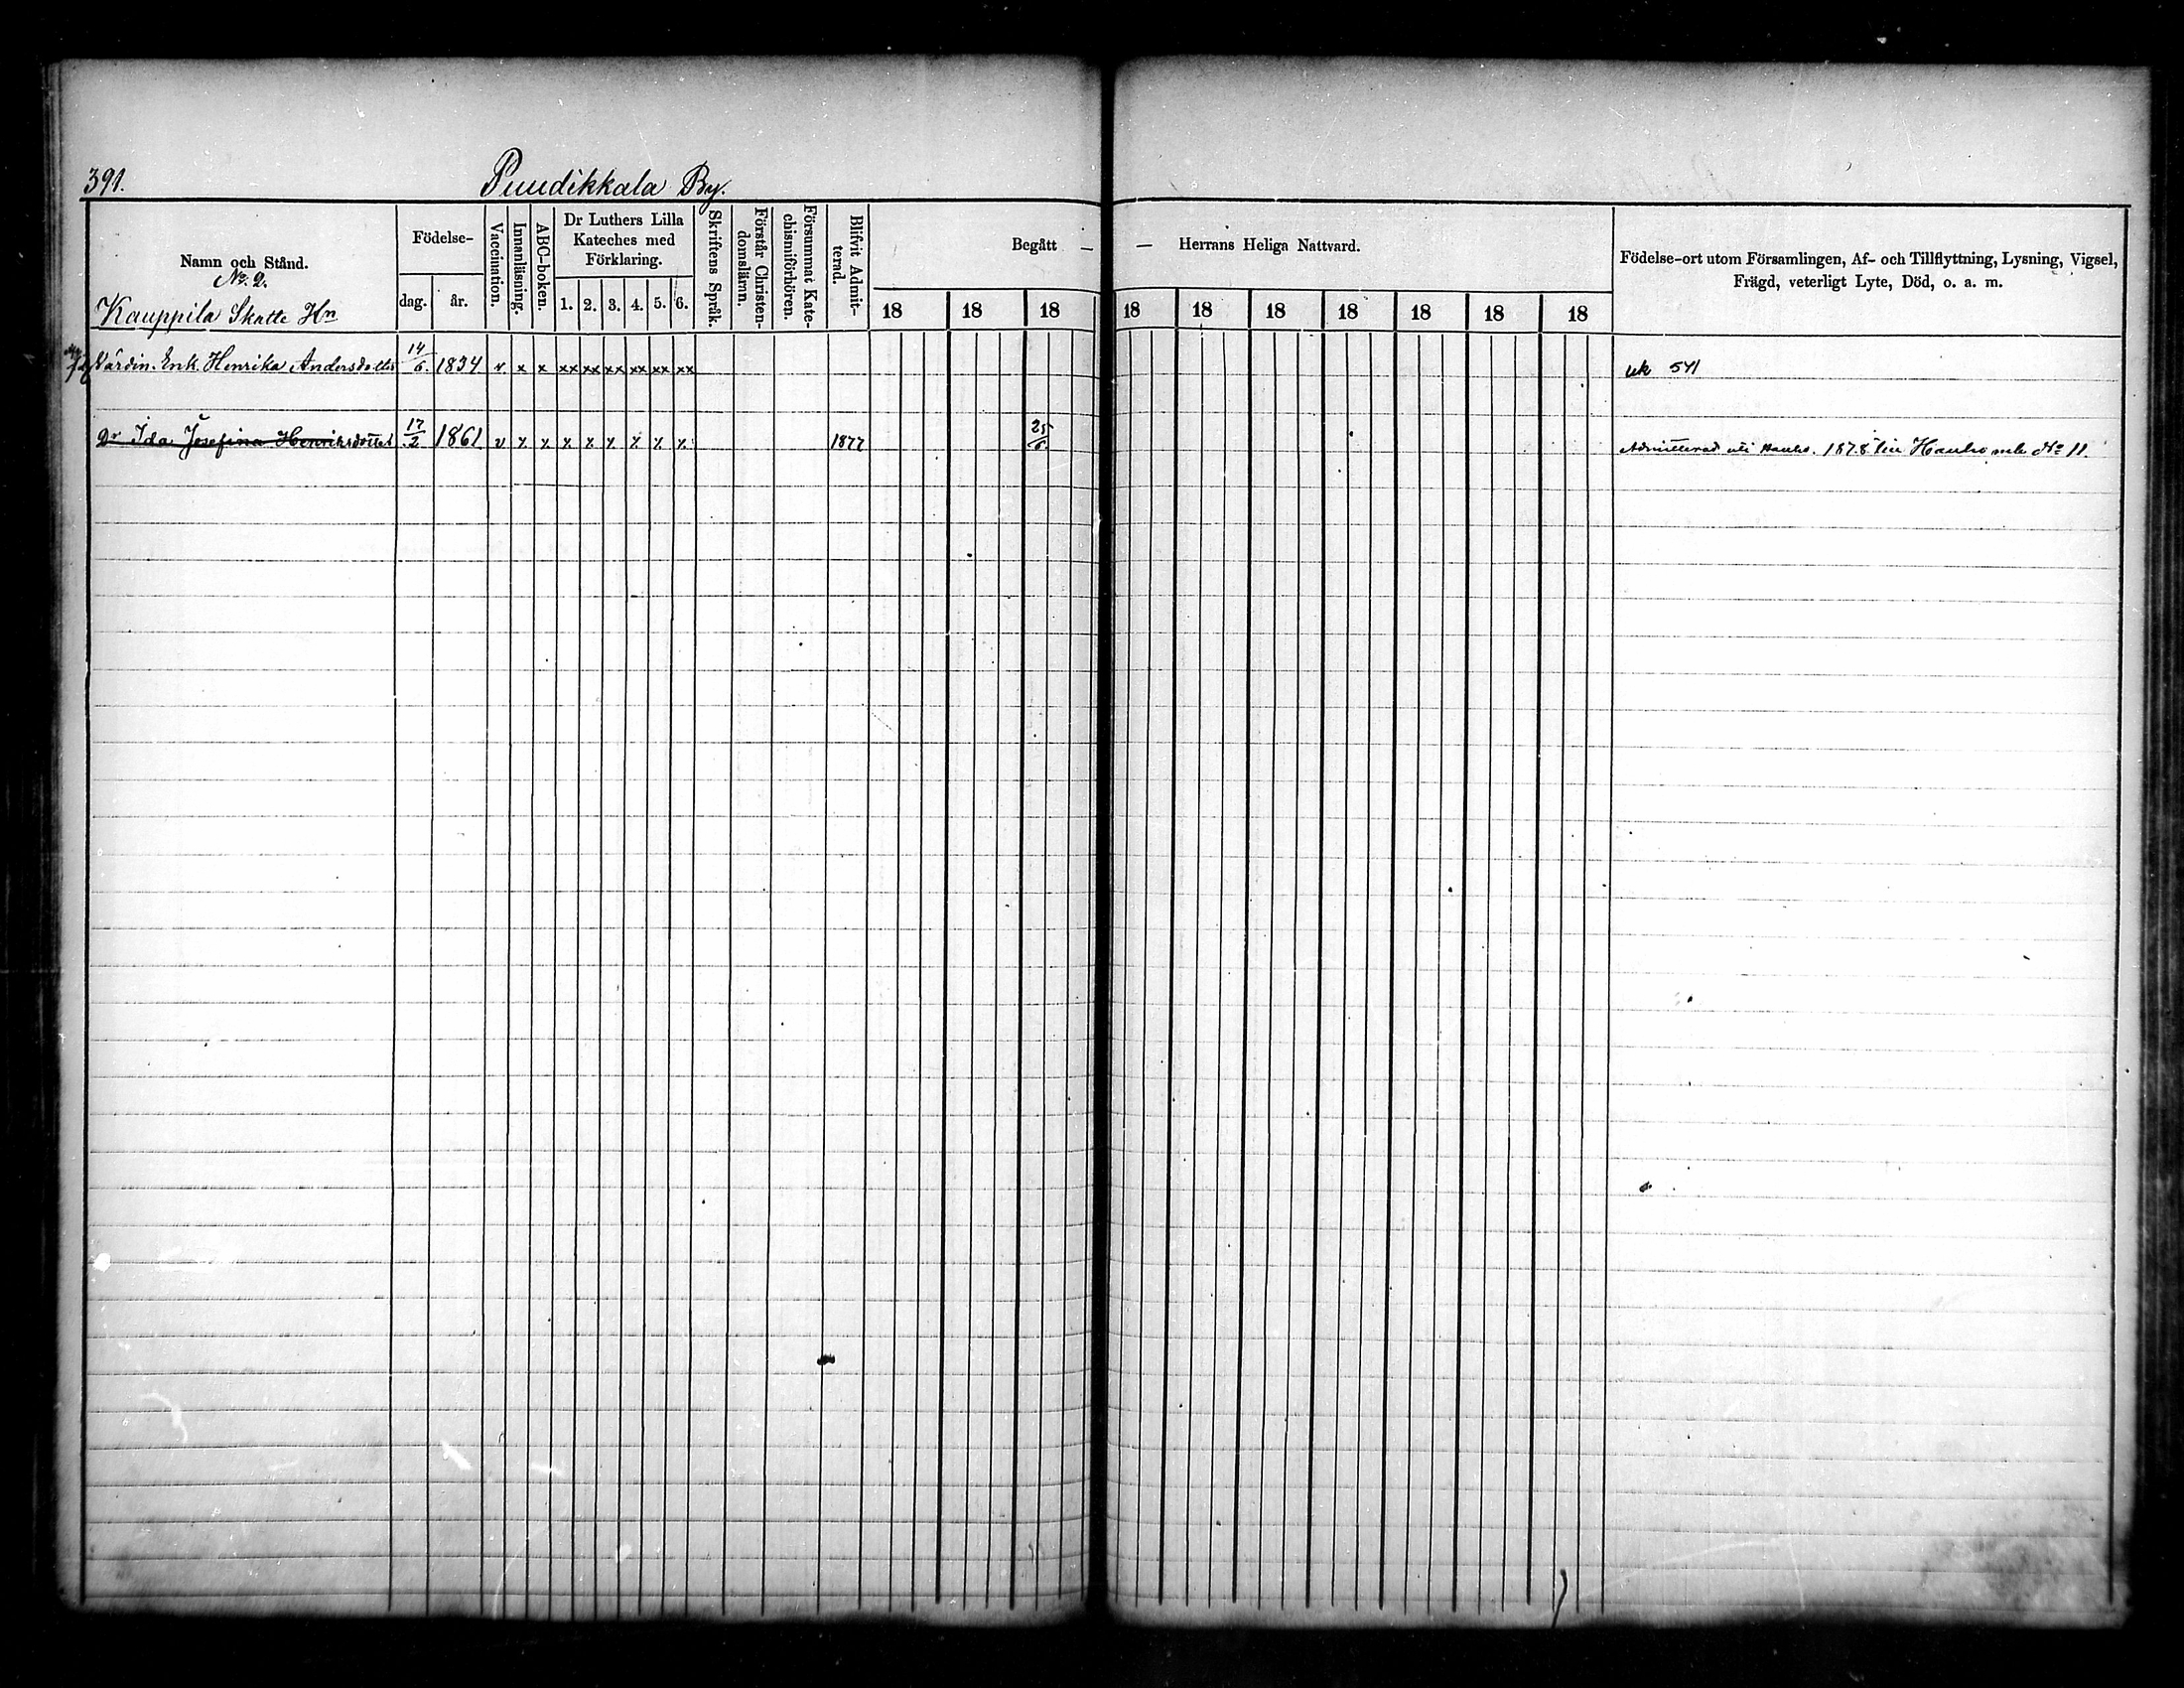 391.
Puudikkala By.
Namn och Stånd.
No. 2.
Kauppila Skatte Hn
Födelse-
dag.
år.
Vaccination.
Innanläsning.
ABC-boken.
Dr Luthers Lilla
Kateches med
Förklaring.
1. 2. 3. 4. 5. 6.
Skriftens Språk.
Förstår Christen-
domslärn.
Försummat Kate-
chismiförhören.
Blifvit Admit-
terad.
Begått — — Herrans Heliga Nattvard.
18 18 18 18 18 18 18 18 18 18
Födelse-ort utom Församlingen, Af- och Tillflyttning, Lysning, Vigsel,
Frägd, veterligt Lyte, Död, o. a. m.
Värdin. Enk. Henrika Andersdotter 14/6. 1834 v x x xx xx xx xx xx xx uk 541
Dr Ida Josefina Henriksdotter 17/2 1861 v x x x x x x x x 1877 25/6. Admitterad uti Hauho. 1878 Hauho No 11.